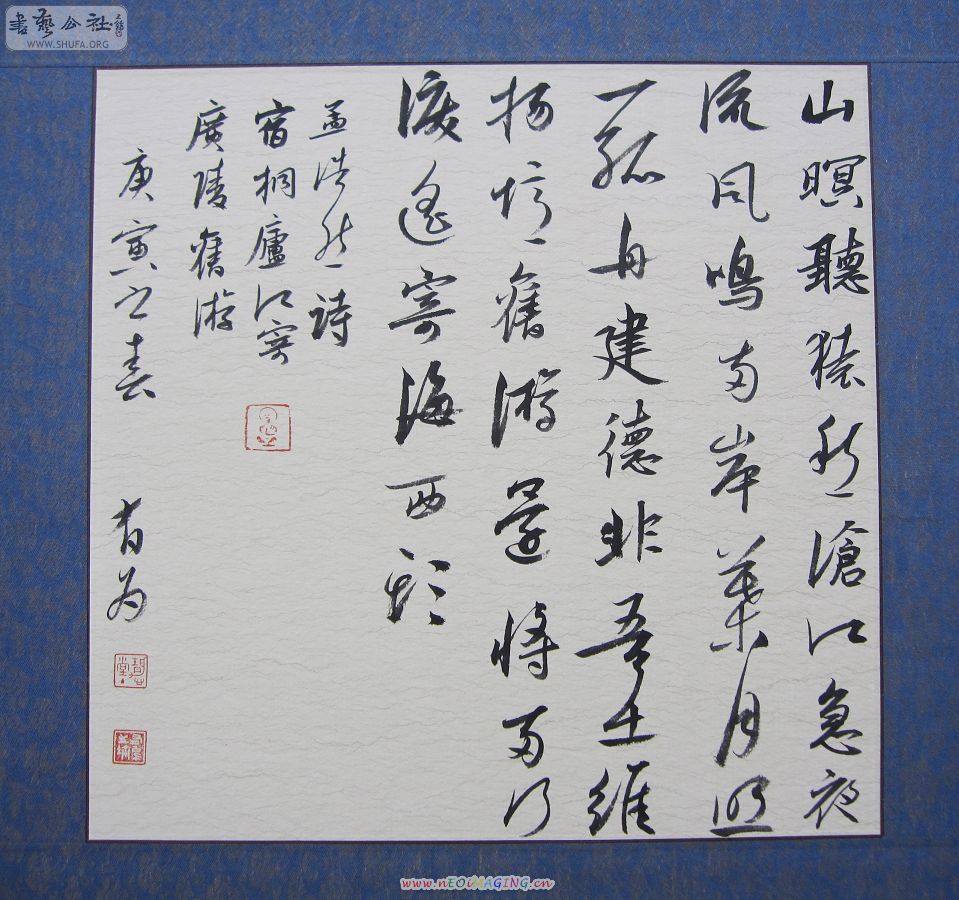 書藝公社
WWW.SHUFA.ORG
山暝聽猿愁滄江急夜
流風鳴兩岸葉月照
一孤舟建德非吾土維
揚憶舊游還將兩行
淚遙寄海西頭
孟浩然詩
宿桐廬江寄
廣陵舊游
庚寅之春
www.nEOiMAGING.cn